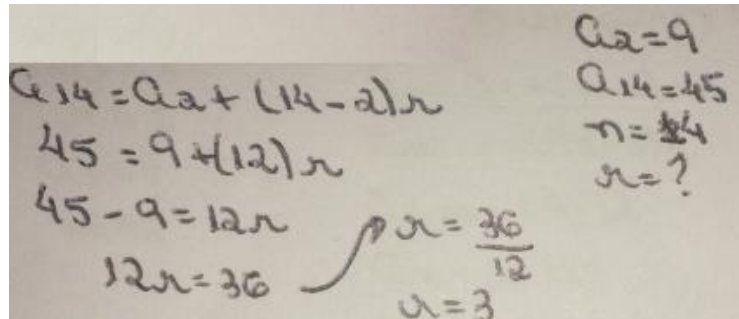 a₁₄ = a₂ + (14 - 2)r
45 = 9 + (12)r
45 - 9 = 12r
12r = 36
r = 36/12
r = 3
a₂ = 9
a₁₄ = 45
n = 14
r = ?